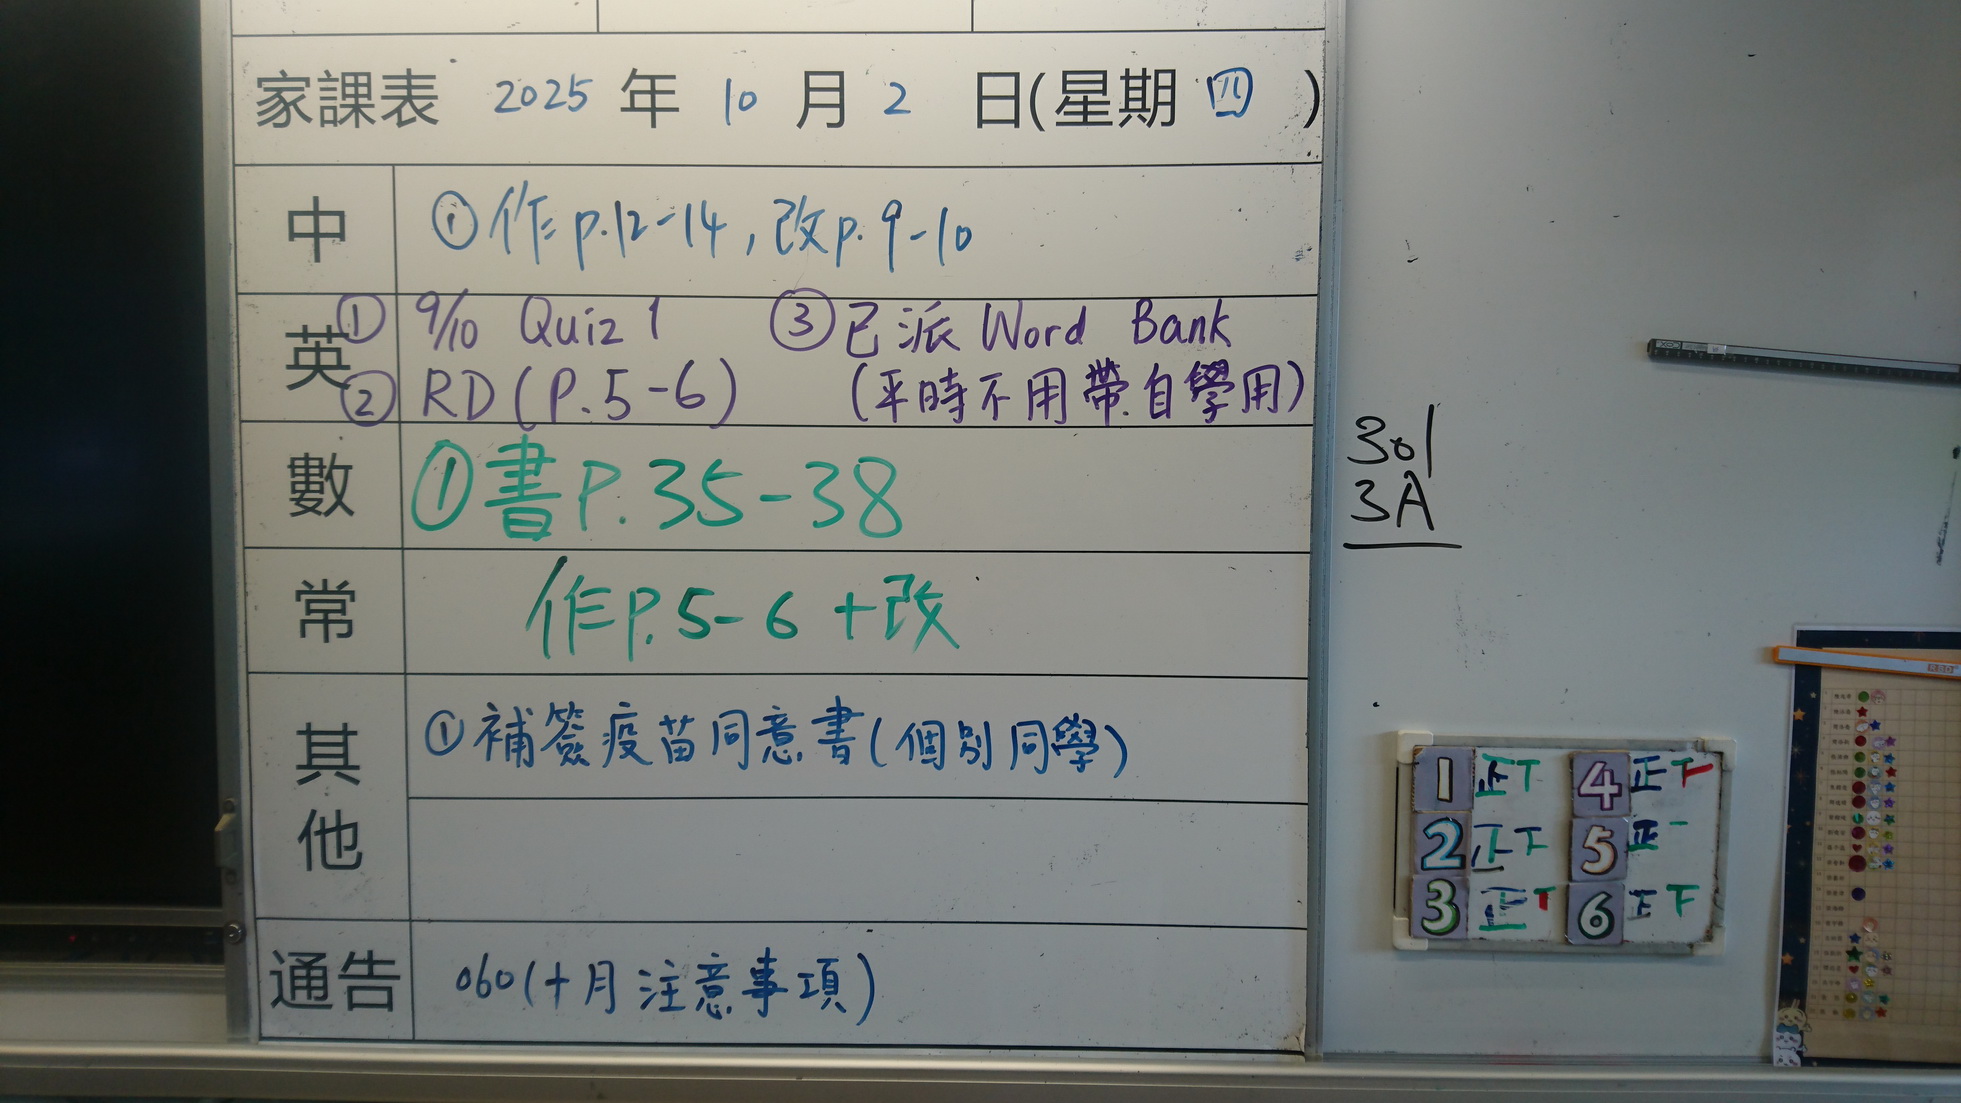 家課表 2025 年 10 月 2 日(星期 四 )
中 ①作p.12-14,改p.9-10
英 ① 9/10 Quiz 1 ③已派 Word Bank
② RD(P.5-6) (平時不用帶.自學用)
數 ①書P.35-38
常 作p.5-6 +改
其他 ①補簽疫苗同意書(個別同學)
通告 060(十月注意事項)
301
3A
1 正丅 4 正丅
2 正下 5 正一
3 正丅 6 正下